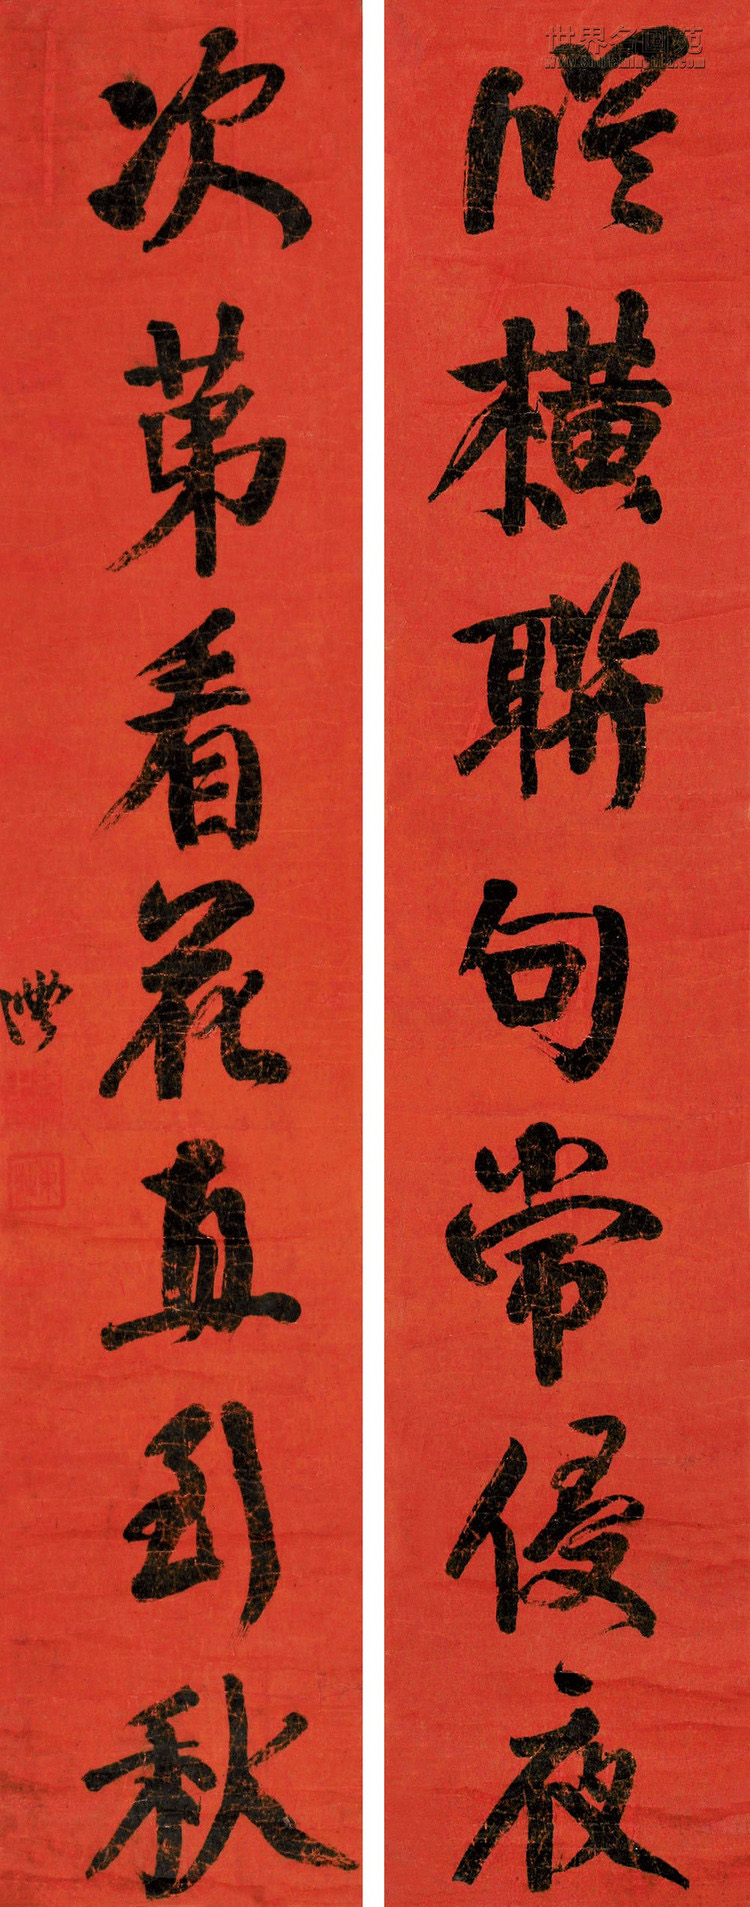 世界名画苑
從橫聯句常侵夜
次第看花直到秋
澧